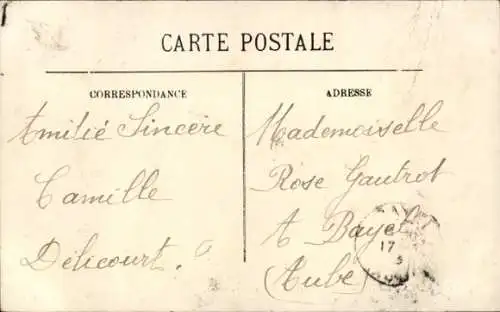 CARTE POSTALE
CORRESPONDANCE
Amitié Sincère
Camille
Délicourt.
ADRESSE
Mademoiselle
Rose Gautrot
A Bayel
(Aube)
17